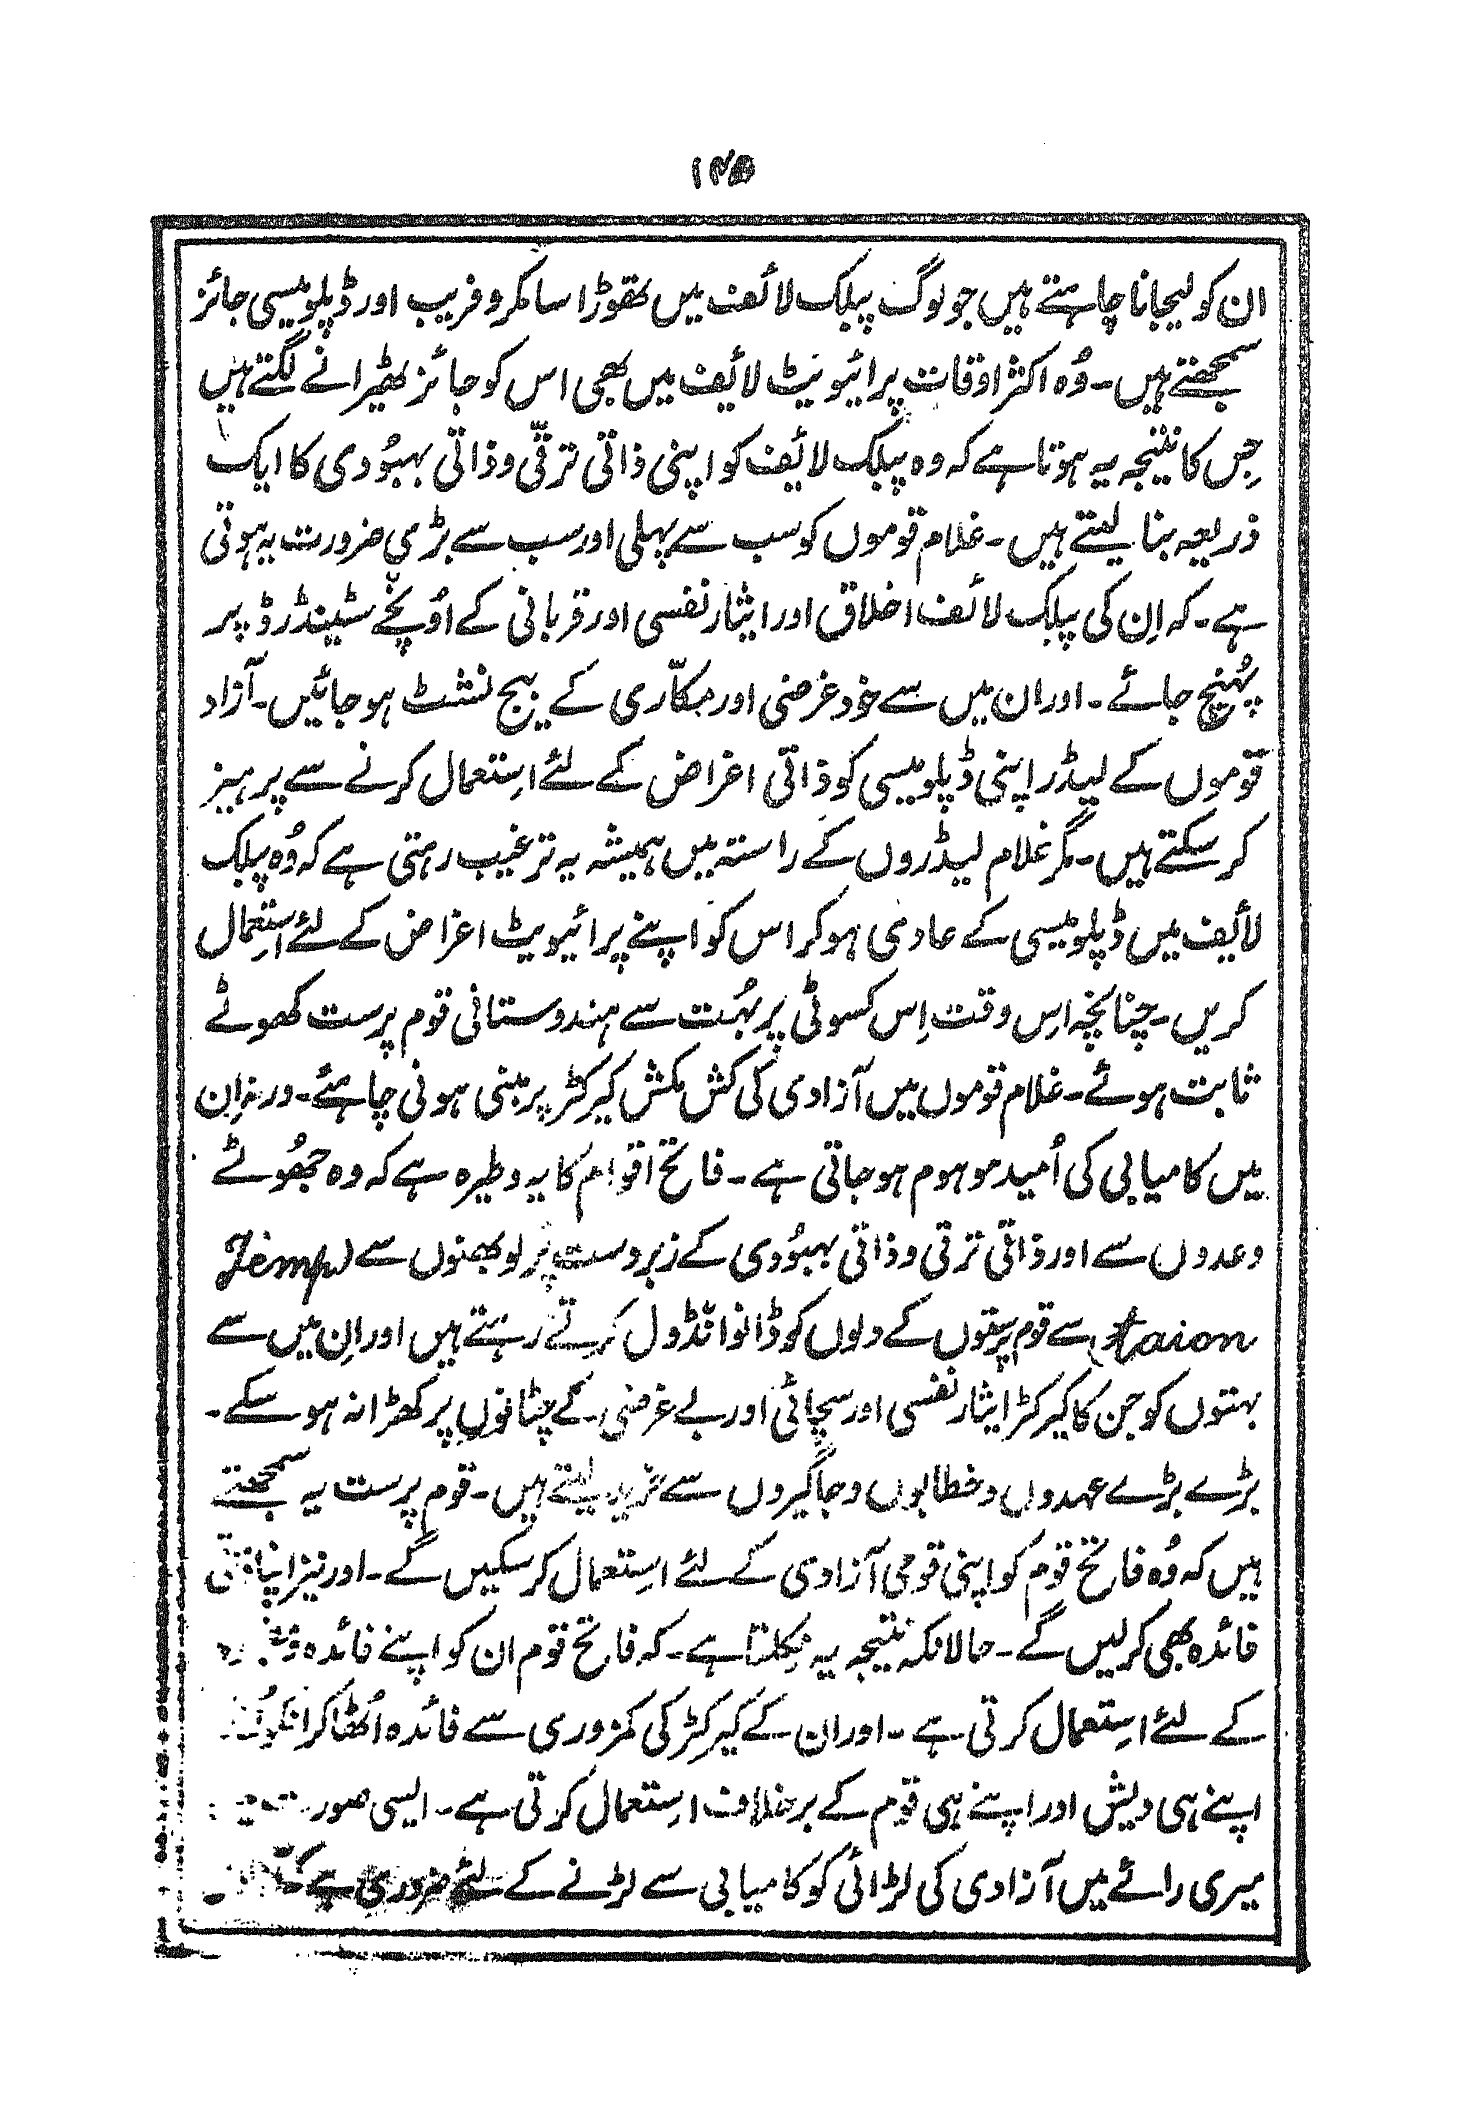 ۱۴۵
ان کو لیجانا چاہتے ہیں جو لوگ پبلک لائف میں تھوڑا سا مکر و فریب اور ڈپلومیسی جائز
سمجھتے ہیں۔ وُہ اکثر اوقات پرائیویٹ لائیف میں بھی اس کو جائز ٹھیرانے لگتے ہیں
جِس کا نتیجہ یہ ہوتا ہے کہ وہ پبلک لائف کو اپنی ذاتی ترقّی و ذاتی بہبُودی کا ایک
ذریعہ بنا لیتے ہیں۔ غلام قوموں کو سب سے پہلی اور سب سے بڑی ضرورت یہ ہوتی
ہے۔ کہ اِن کی پبلک لائف اخلاق اور ایثار نفسی اور قربانی کے اوُنچے سٹینڈرڈ پر
پہُنچ جائے۔ اور ان میں سے خود غرضی اور مکّاری کے بیج نشٹ ہو جائیں۔ آزاد
قوموں کے لیڈر اپنی ڈپلومیسی کو ذاتی اغراض کے لئے اِستعمال کرنے سے پرہیز
کر سکتے ہیں۔ مگر غلام لیڈروں کے راستہ میں ہمیشہ یہ ترغیب رہتی ہے کہ وُہ پبلک
لائیف میں ڈپلومیسی کے عادی ہو کر اس کو اپنے پرائیویٹ اغراض کے لئے اِستعمال
کریں۔ چنانچہ اس وقت اِس کسوٹی پر بہُت سے ہندوستانی قوم پرست کھوٹے
ثابت ہوئے۔ غلام قوموں میں آزادی کی کش مکش کیرکٹر پر مبنی ہونی چاہئے۔ ورنہ اِن
میں کامیابی کی اُمید موہوم ہو جاتی ہے۔ فاتح اقوام کا یہ وطیرہ ہے کہ وہ جھُوٹے
وعدوں سے اور ذاتی ترقی و ذاتی بہبُودی کے زبردست پرلوبھنوں سے (Temp
taion) سے قوم پرستوں کے دلوں کو ڈانوانڈول کرتے رہتے ہیں اور اِن میں سے
بہتوں کو جن کا کیرکٹر ایثار نفسی اور سچائی اور بے غرضی کے چٹانوں پر کھڑا نہ ہو سکے۔
بڑے بڑے عہدوں و خطابوں و جاگیروں سے خرید لیتے ہیں۔ قوم پرست یہ سمجھتے
ہیں کہ وُہ فاتح قوم کو اپنی قومی آزادی کے لئے اِستعمال کر سکیں گے۔ اور نیز اپنا
فائدہ بھی کر لیں گے۔ حالانکہ نتیجہ یہ نِکلتا ہے۔ کہ فاتح قوم ان کو اپنے فائدہ
کے لئے اِستعمال کرتی ہے۔ اور ان کے کیرکٹر کی کمزوری سے فائدہ اُٹھا کر
اپنے ہی دیش اور اپنے ہی قوم کے برخلاف اِستعمال کرتی ہے۔ ایسی صورت
میری رائے میں آزادی کی لڑائی کو کامیابی سے لڑنے کے لئے ضروری ہے